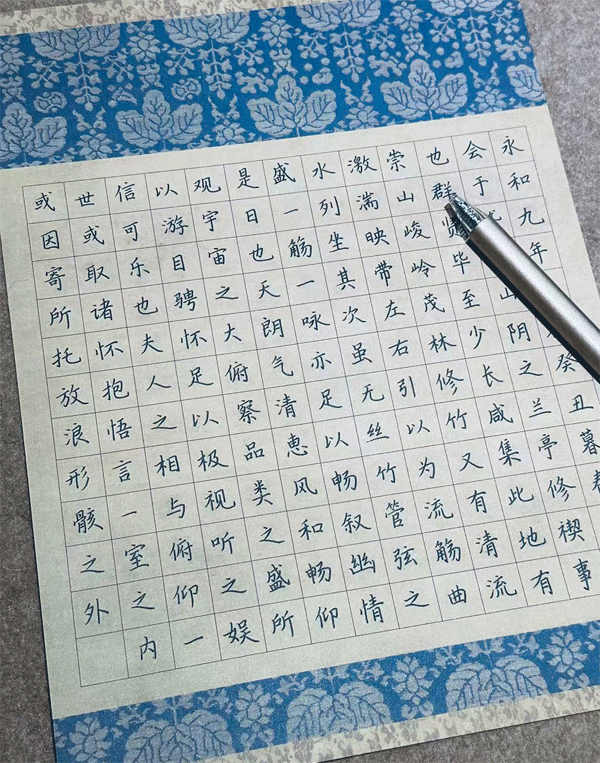 永和九年癸丑暮春
会于山阴之兰亭修禊事
也群贤毕至少长咸集此地有
崇山峻岭茂林修竹又有清流
激湍映带左右引以为流觞曲
水列坐其次虽无丝竹管弦之
盛一觞一咏亦足以畅叙幽情
是日也天朗气清惠风和畅仰
观宇宙之大俯察品类之盛所
以游目骋怀足以极视听之娱
信可乐也夫人之相与俯仰一
世或取诸怀抱悟言一室之内
或因寄所托放浪形骸之外